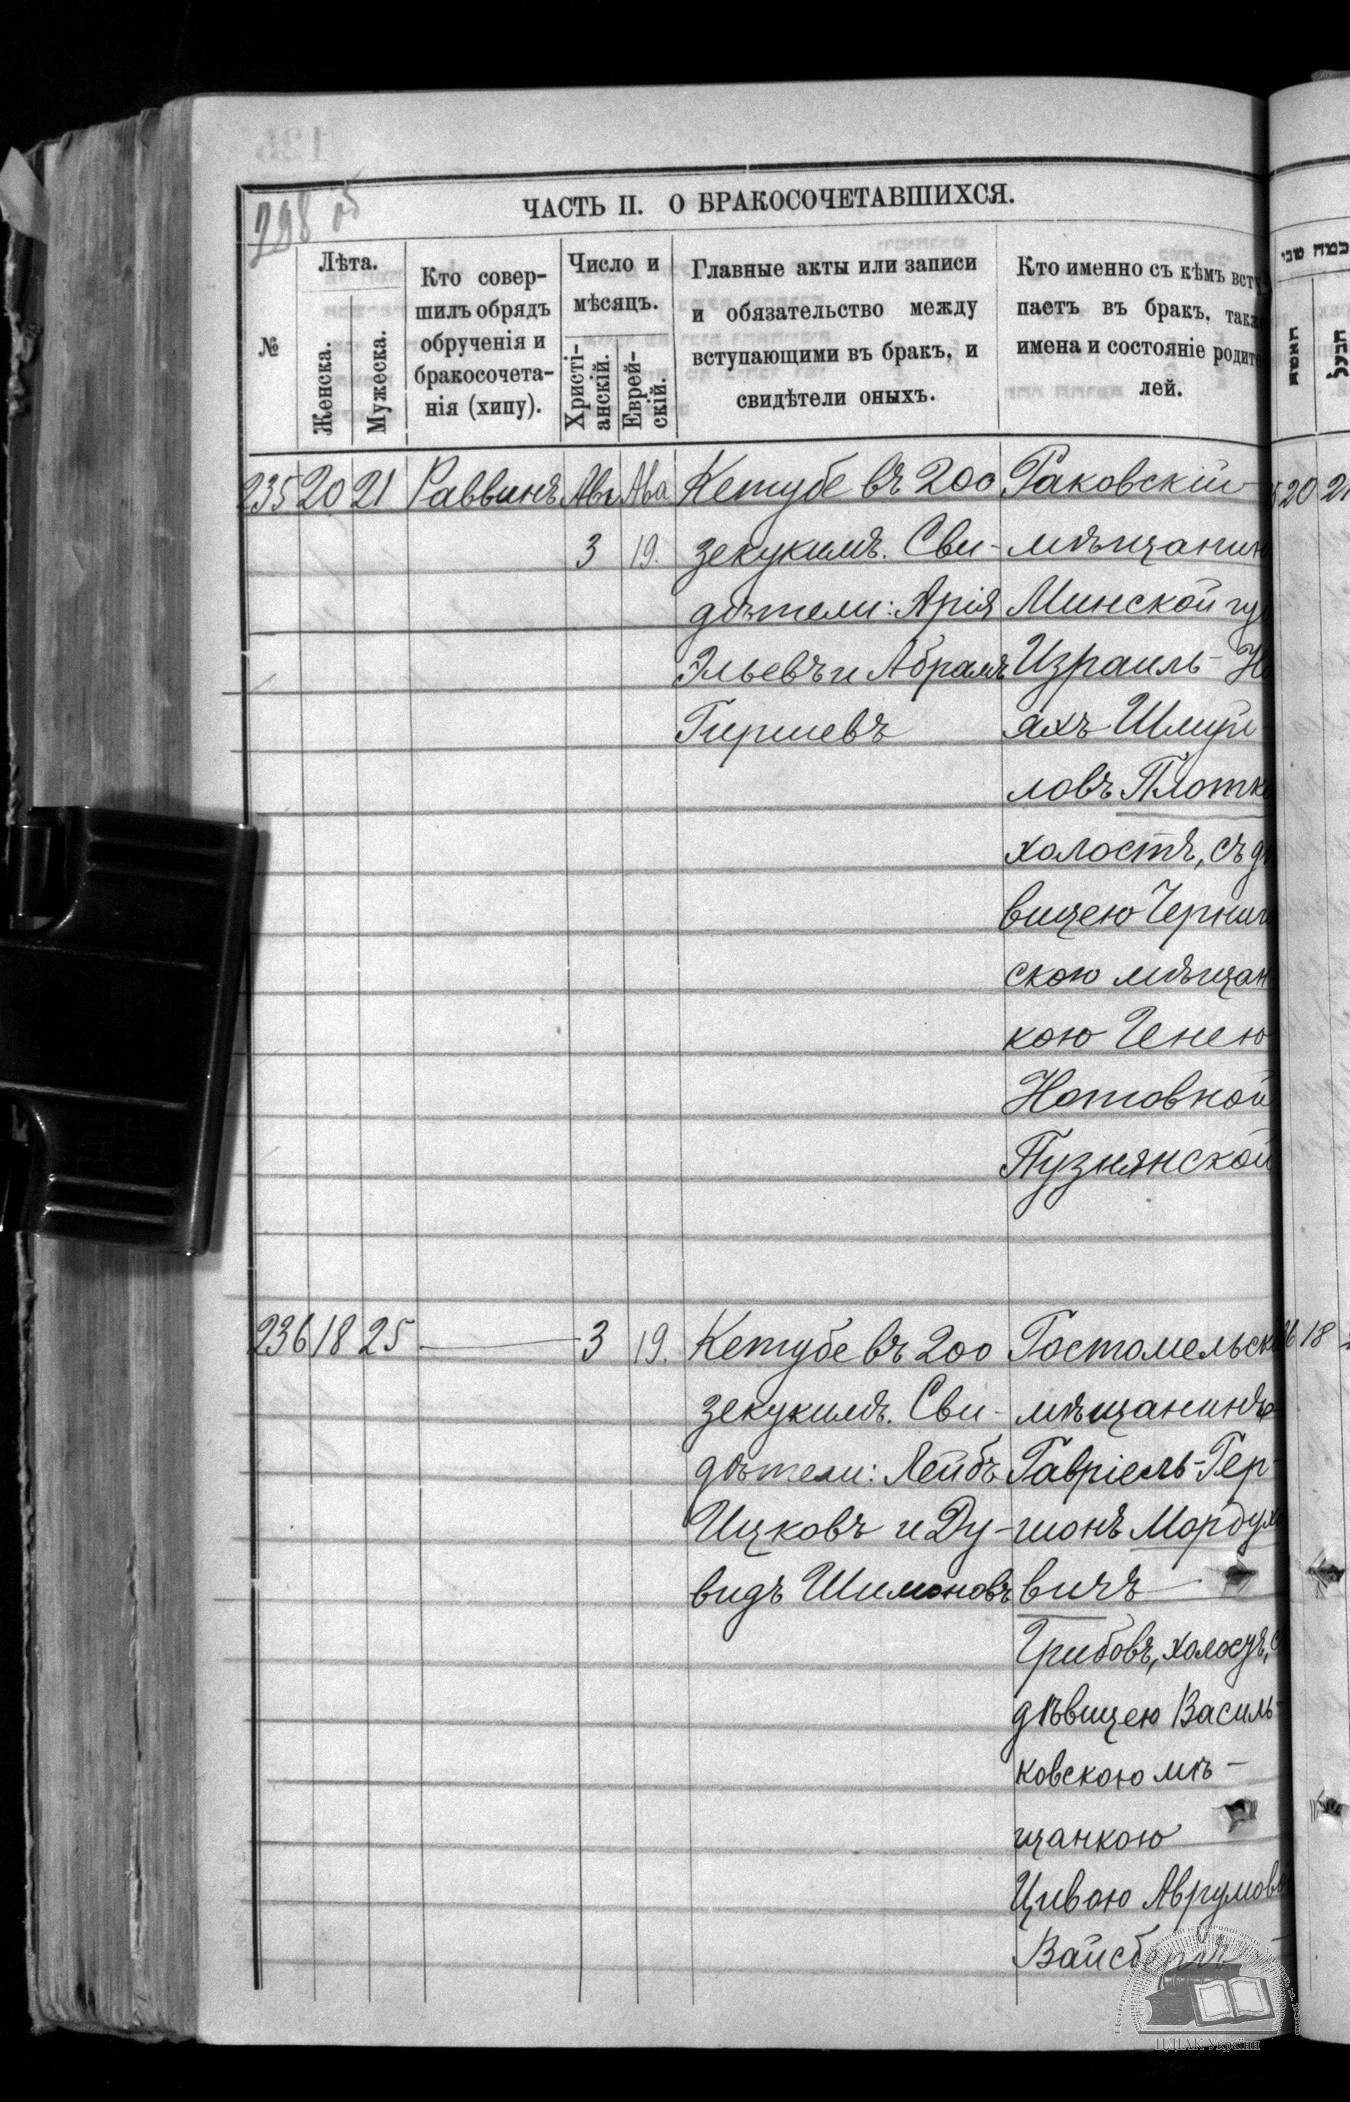 298 об
ЧАСТЬ II. О БРАКОСОЧЕТАВШИХСЯ.
№
Лѣта.
Женска.
Мужеска.
Кто совер-
шилъ обрядъ
обрученія и
бракосочета-
нія (хипу).
Число и
мѣсяцъ.
Христі-
анскій.
Еврей-
скій.
Главные акты или записи
и обязательство между
вступающими въ бракъ, и
свидѣтели оныхъ.
Кто именно съ кѣмъ всту-
паетъ въ бракъ, также
имена и состояніе родите-
лей.
235 20 21 Раввинъ Авг Ава
3 19.
Кетубе въ 200
зекукимъ. Сви-
дѣтели: Арія
Эльевъ и Абрамъ
Гиршевъ
Раковскій
мѣщанин
Минской гу
Израиль-Но
ахъ Шмуй-
ловъ Плотк
холостъ, съ дѣ
вицею Черниг
скою мѣщан
кою Генею
Нотовной
Пузнянской
236 18 25 — 3 19.
Кетубе въ 200
зекукимъ. Сви-
дѣтели: Лейбъ
Ицковъ и Ду-
видъ Шимоновъ
Гостомельск
мѣщанинъ
Гавріель-Гер-
шонъ Мордух
вичъ
Грибовъ, холостъ, с
дѣвицею Василь-
ковскою мѣ-
щанкою
Циваю Аврумов
Вайсбергъ
20 21
18
ЦДІАК України